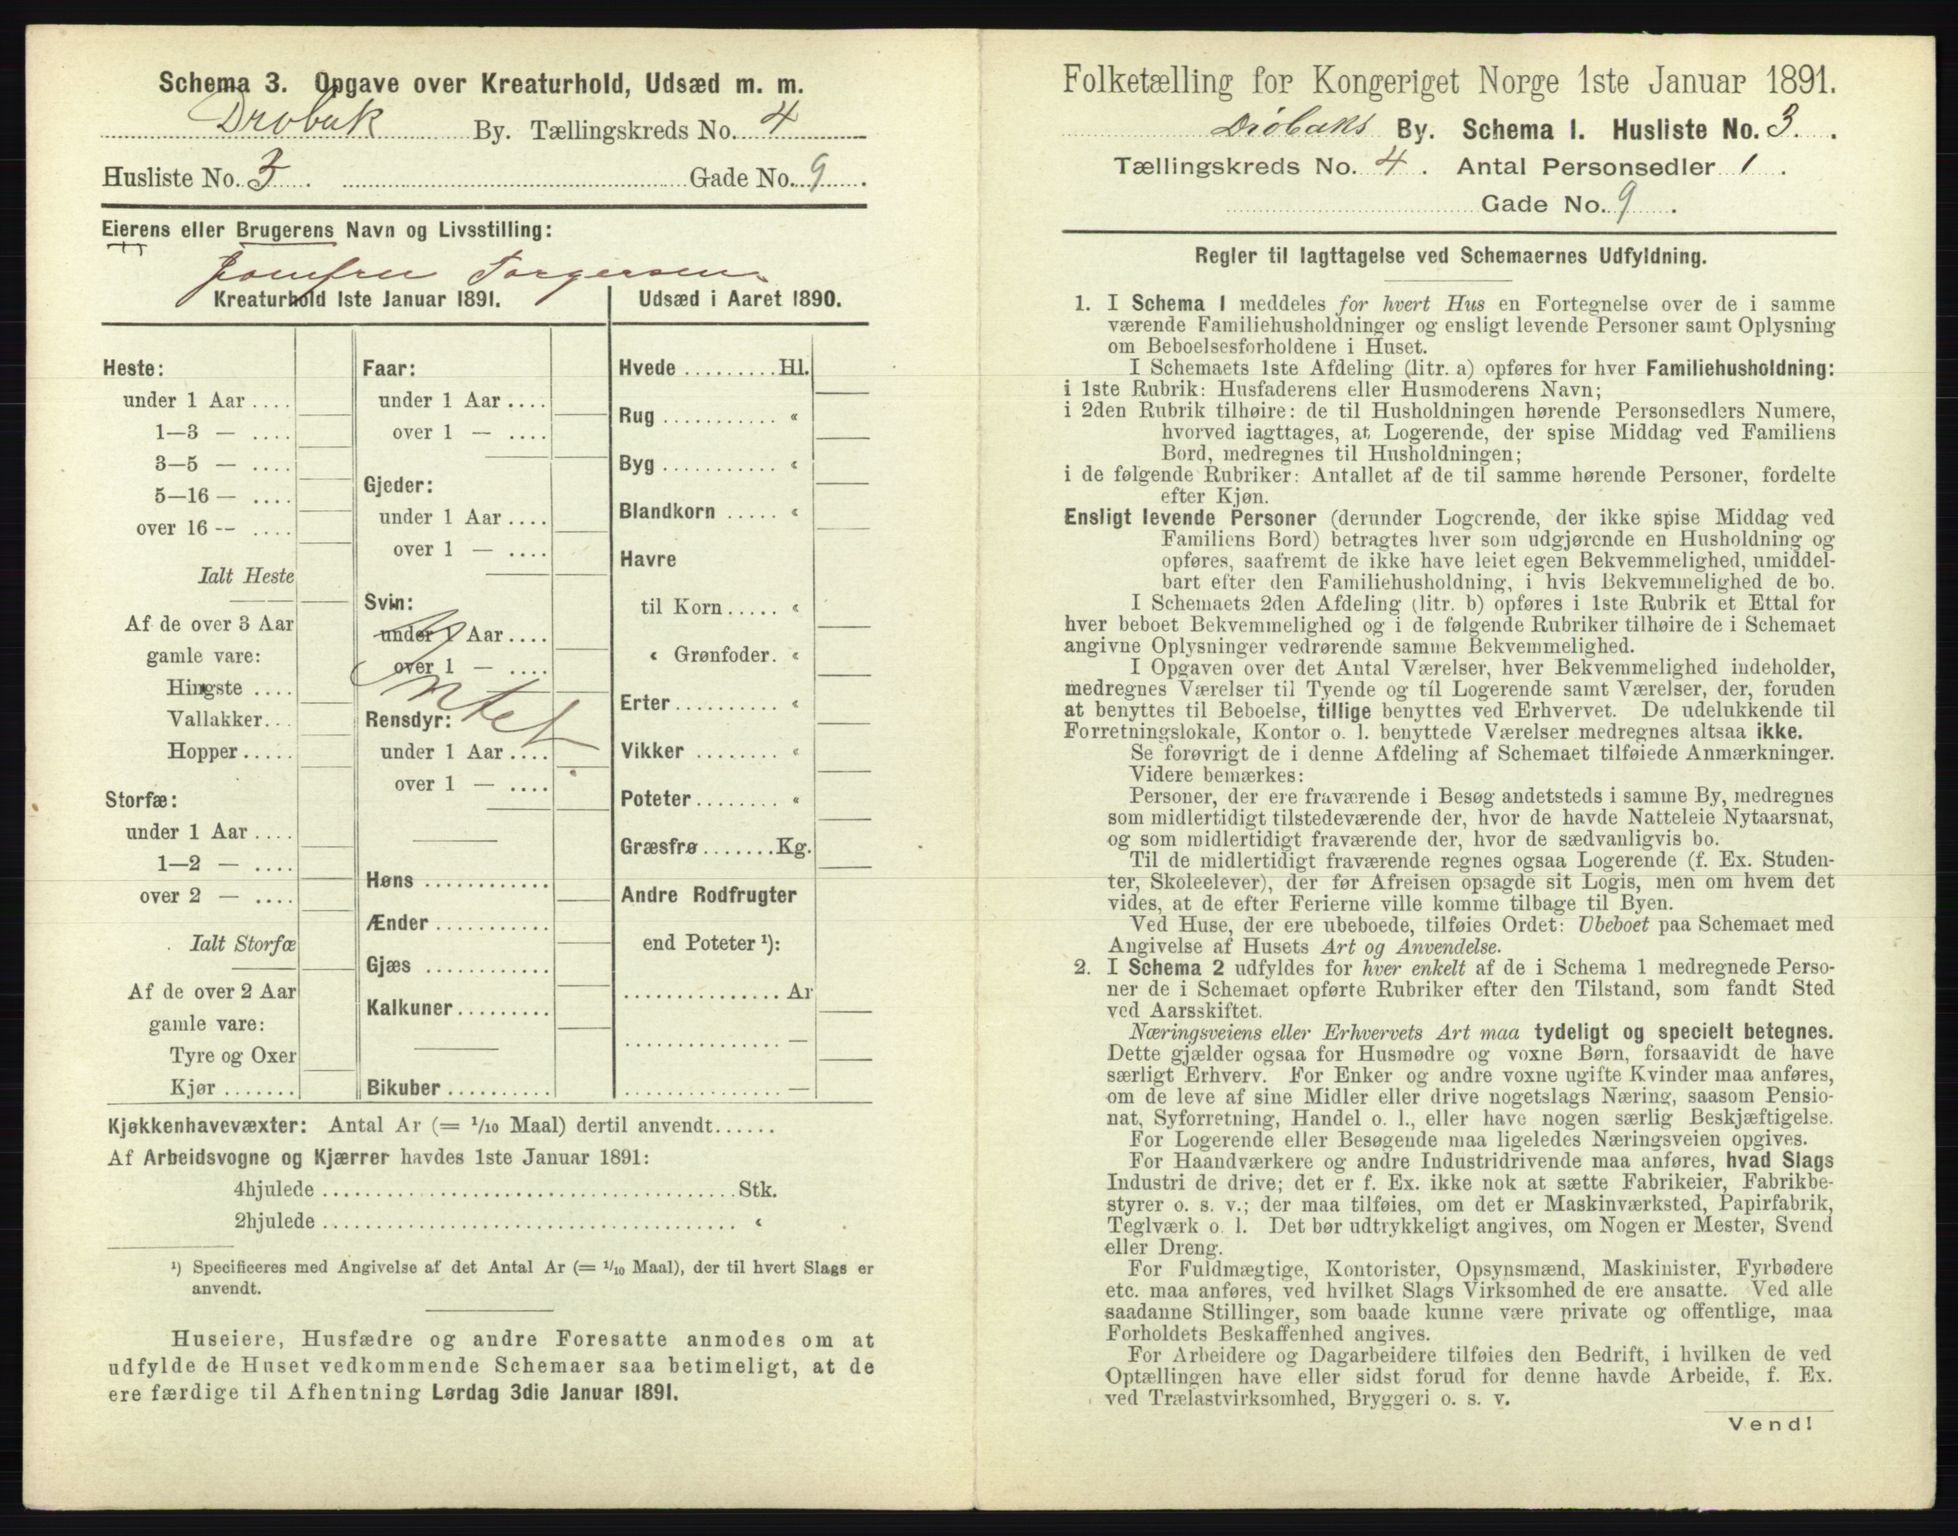 Schema 3. Opgave over Kreaturhold, Udsæd m. m.
Drøbak By. Tællingskreds No. 4
Husliste No. 3. Gade No. 9.
Eierens eller Brugerens Navn og Livsstilling:
Jomfru Torgersen
Kreaturhold 1ste Januar 1891.
Heste:
under 1 Aar ....
1—3 — ....
3—5 — ....
5—16 — ....
over 16 — ....
Ialt Heste
Af de over 3 Aar
gamle vare:
Hingste ....
Vallakker...
Hopper .....
Storfæ:
under 1 Aar ....
1—2 — ....
over 2 — ....
Ialt Storfæ
Af de over 2 Aar
gamle vare:
Tyre og Oxer
Kjør .......
Faar:
under 1 Aar ....
over 1 — ....
Gjeder:
under 1 Aar ....
over 1 — ....
Svin:
under 1 Aar ....
over 1 — ....
Intet
Rensdyr:
under 1 Aar ....
over 1 — ....
Høns ............
Ænder ...........
Gjæs ............
Kalkuner.........
Bikuber ..........
Udsæd i Aaret 1890.
Hvede .........Hl.
Rug ........... «
Byg ........... «
Blandkorn ..... «
Havre
til Korn ..... «
« Grønfoder. «
Erter ......... «
Vikker ........ «
Poteter ........ «
Græsfrø .......Kg.
Andre Rodfrugter
end Poteter ¹):
............... Ar
............... —
............... —
Kjøkkenhavevæxter: Antal Ar (= 1/10 Maal) dertil anvendt......
Af Arbeidsvogne og Kjærrer havdes 1ste Januar 1891:
4hjulede ....................................Stk.
2hjulede .................................... «
¹) Specificeres med Angivelse af det Antal Ar (= 1/10 Maal), der til hvert Slags er
anvendt.
Huseiere, Husfædre og andre Foresatte anmodes om at
udfylde de Huset vedkommende Schemaer saa betimeligt, at de
ere færdige til Afhentning Lørdag 3die Januar 1891.
Folketælling for Kongeriget Norge 1ste Januar 1891.
Drøbaks By. Schema I. Husliste No. 3.
Tællingskreds No. 4. Antal Personsedler 1.
Gade No. 9.
Regler til Iagttagelse ved Schemaernes Udfyldning.
1. I Schema 1 meddeles for hvert Hus en Fortegnelse over de i samme
værende Familiehusholdninger og ensligt levende Personer samt Oplysning
om Beboelsesforholdene i Huset.
I Schemaets 1ste Afdeling (litr. a) opføres for hver Familiehusholdning:
i 1ste Rubrik: Husfaderens eller Husmoderens Navn;
i 2den Rubrik tilhøire: de til Husholdningen hørende Personsedlers Numere,
hvorved iagttages, at Logerende, der spise Middag ved Familiens
Bord, medregnes til Husholdningen;
i de følgende Rubriker: Antallet af de til samme hørende Personer, fordelte
efter Kjøn.
Ensligt levende Personer (derunder Logerende, der ikke spise Middag ved
Familiens Bord) betragtes hver som udgjørende en Husholdning og
opføres, saafremt de ikke have leiet egen Bekvemmelighed, umiddel-
bart efter den Familiehusholdning, i hvis Bekvemmelighed de bo.
I Schemaets 2den Afdeling (litr. b) opføres i 1ste Rubrik et Ettal for
hver beboet Bekvemmelighed og i de følgende Rubriker tilhøire de i Schemaet
angivne Oplysninger vedrørende samme Bekvemmelighed.
I Opgaven over det Antal Værelser, hver Bekvemmelighed indeholder,
medregnes Værelser til Tyende og til Logerende samt Værelser, der, foruden
at benyttes til Beboelse, tillige benyttes ved Erhvervet. De udelukkende til
Forretningslokale, Kontor o. l. benyttede Værelser medregnes altsaa ikke.
Se forøvrigt de i denne Afdeling af Schemaet tilføiede Anmærkninger.
Videre bemærkes:
Personer, der ere fraværende i Besøg andetsteds i samme By, medregnes
som midlertidigt tilstedeværende der, hvor de havde Natteleie Nytaarsnat,
og som midlertidigt fraværende der, hvor de sædvanligvis bo.
Til de midlertidigt fraværende regnes ogsaa Logerende (f. Ex. Studen-
ter, Skoleelever), der før Afreisen opsagde sit Logis, men om hvem det
vides, at de efter Ferierne ville komme tilbage til Byen.
Ved Huse, der ere ubeboede, tilføies Ordet: Ubeboet paa Schemaet med
Angivelse af Husets Art og Anvendelse.
2. I Schema 2 udfyldes for hver enkelt af de i Schema 1 medregnede Perso-
ner de i Schemaet opførte Rubriker efter den Tilstand, som fandt Sted
ved Aarsskiftet.
Næringsveiens eller Erhvervets Art maa tydeligt og specielt betegnes.
Dette gjælder ogsaa for Husmødre og voxne Børn, forsaavidt de have
særligt Erhverv. For Enker og andre voxne ugifte Kvinder maa anføres,
om de leve af sine Midler eller drive nogetslags Næring, saasom Pensio-
nat, Syforretning, Handel o. l., eller have nogen særlig Beskjæftigelse.
For Logerende eller Besøgende maa ligeledes Næringsveien opgives.
For Haandværkere og andre Industridrivende maa anføres, hvad Slags
Industri de drive; det er f. Ex. ikke nok at sætte Fabrikeier, Fabrikbe-
styrer o. s. v.; der maa tilføies, om det er Maskinværksted, Papirfabrik,
Teglværk o. l. Det bør udtrykkeligt angives, om Nogen er Mester, Svend
eller Dreng.
For Fuldmægtige, Kontorister, Opsynsmænd, Maskinister, Fyrbødere
etc. maa anføres, ved hvilket Slags Virksomhed de ere ansatte. Ved alle
saadanne Stillinger, som baade kunne være private og offentlige, maa
Forholdets Beskaffenhed angives.
For Arbeidere og Dagarbeidere tilføies den Bedrift, i hvilken de ved
Optællingen have eller sidst forud for denne havde Arbeide, f. Ex.
ved Trælastvirksomhed, Bryggeri o. s. v.
Vend!